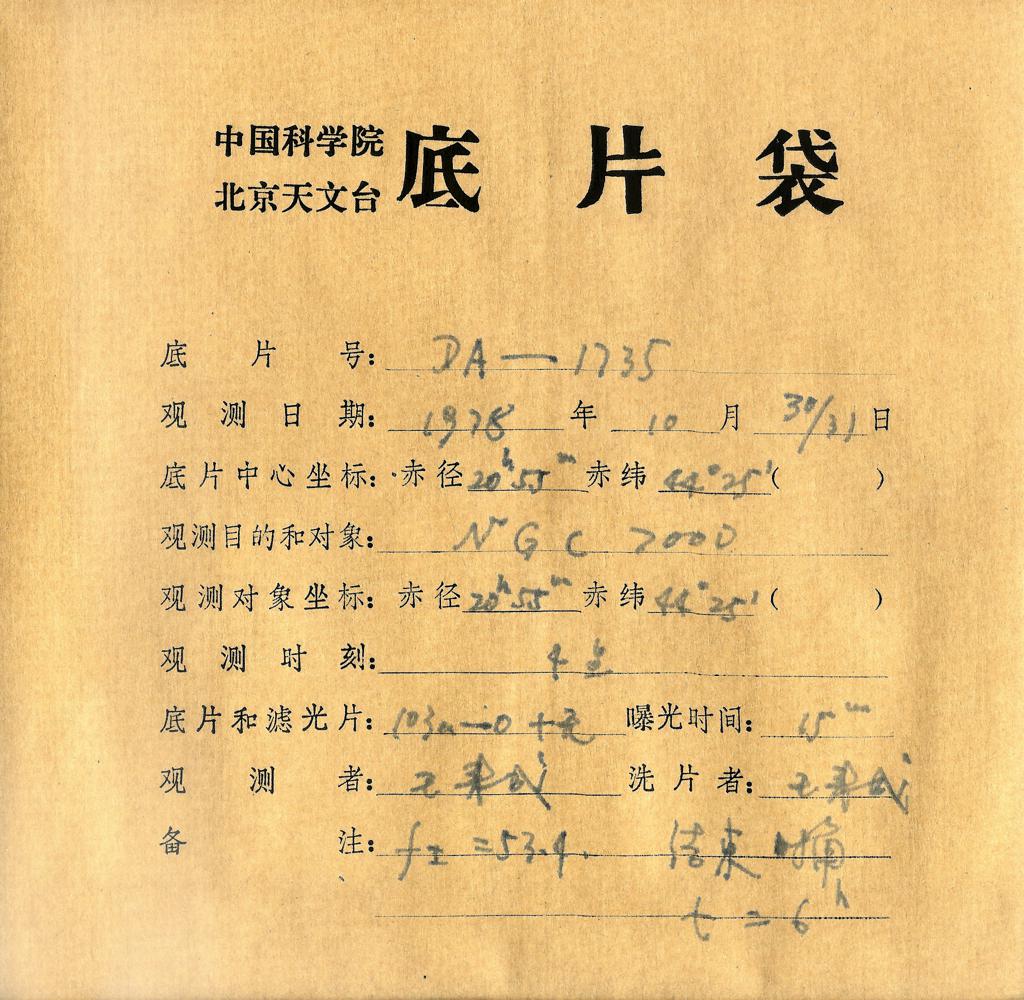 中国科学院
北京天文台
底片袋
底片号: DA—1735
观测日期: 1978年10月30/31日
底片中心坐标: 赤径20h55m赤纬44°25'( )
观测目的和对象: NGC 7000
观测对象坐标: 赤径20h55m赤纬44°25'( )
观测时刻:
底片和滤光片: 103a—O+无 曝光时间: 15m
观测者: 洗片者:
备注: =53.4. 结束时角
t=6h